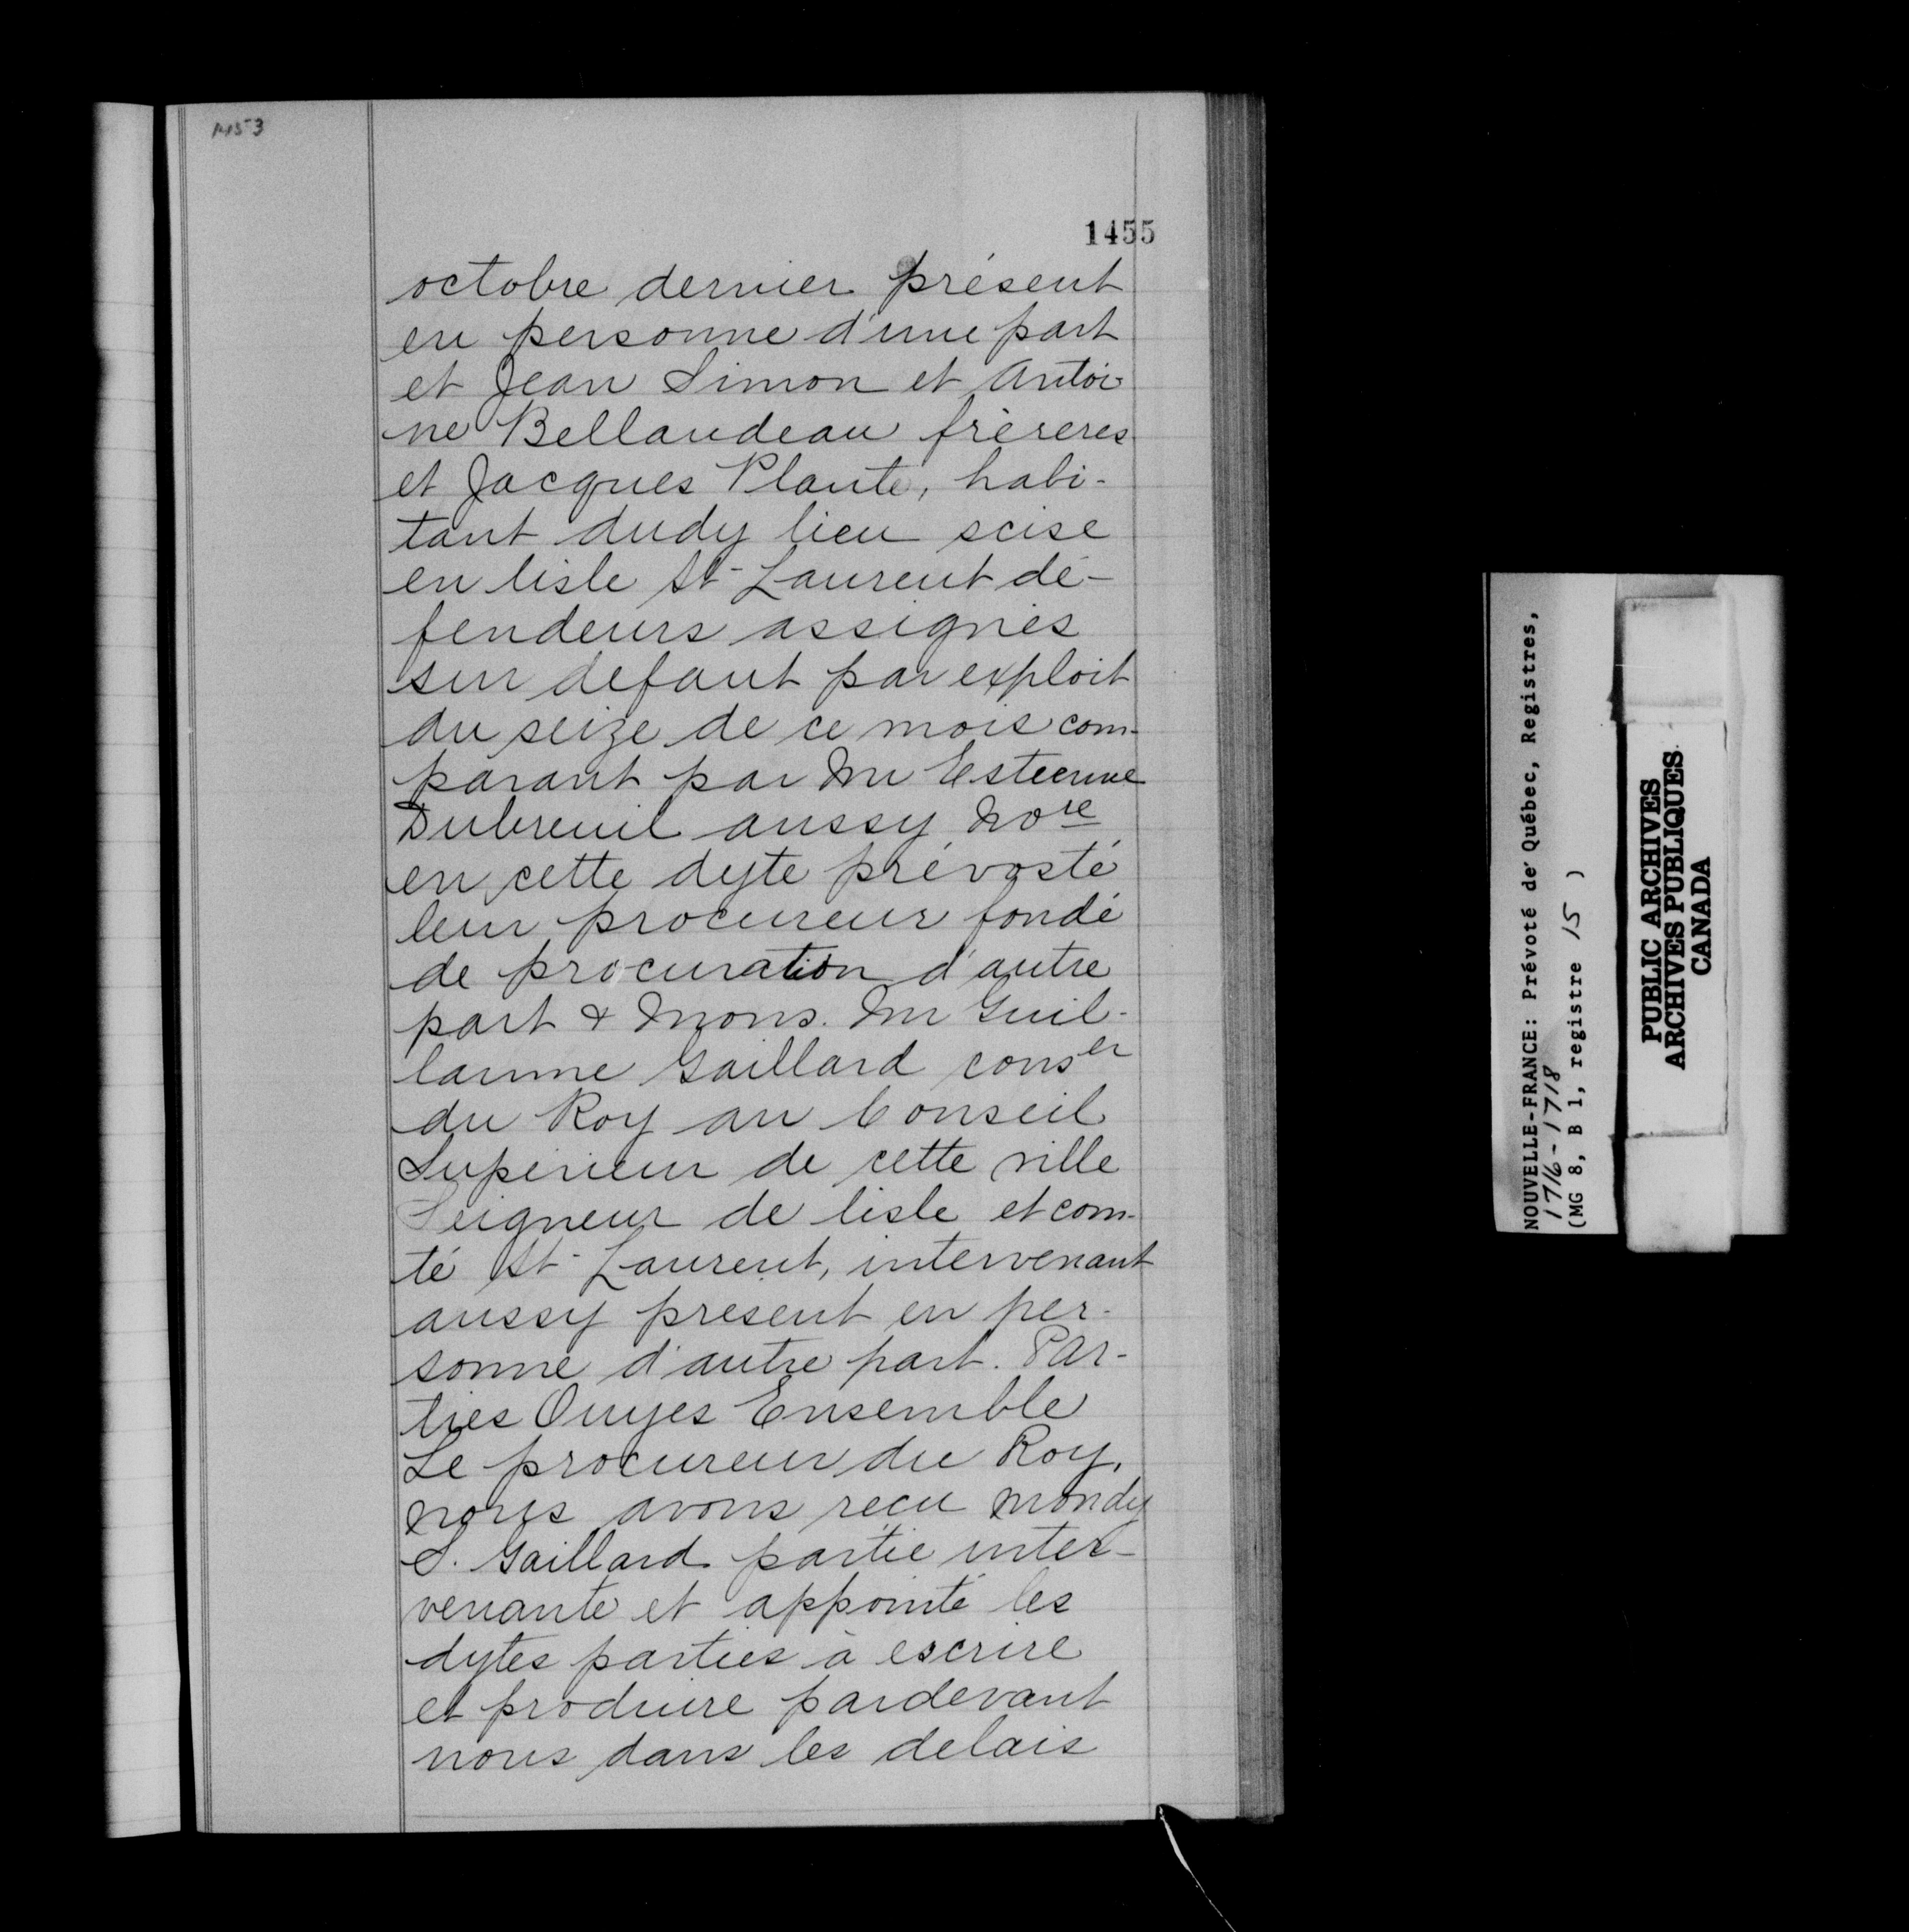 1453
1455
octobre dernier présent
en personne d'une part
et Jean Simon et Antoi
ne Bellaudeau frèreres
et Jacques Plante, habi-
tant dudy lieu scise
en lisle St-Laurent dé-
fendeurs assignés
sur defaut par exploit
du seize de ce mois com-
parant par Mr Estienne
Dubreuil aussy Nore
en cette dyte prévosté
leur procureur fondé
de procuration d'autre
part & Mons. Mr Guil-
laume Gaillard conser
du Roy au Conseil
Supérieur de cette ville
Seigneur de lisle et com-
té St-Laurent, intervenant
aussy present en per-
sonne d'autre part. Par-
ties Ouyes Ensemble
Le procureur du Roy.
nous avons reçu mondy
S. Gaillard partie inter-
venante et appointé les
dytes parties à escrire
et produire pardevant
nous dans les delais
NOUVELLE-FRANCE: Prévoté de Québec, Registres,
1716-1718
(MG 8, B 1, registre 15 )
PUBLIC ARCHIVES
ARCHIVES PUBLIQUES
CANADA